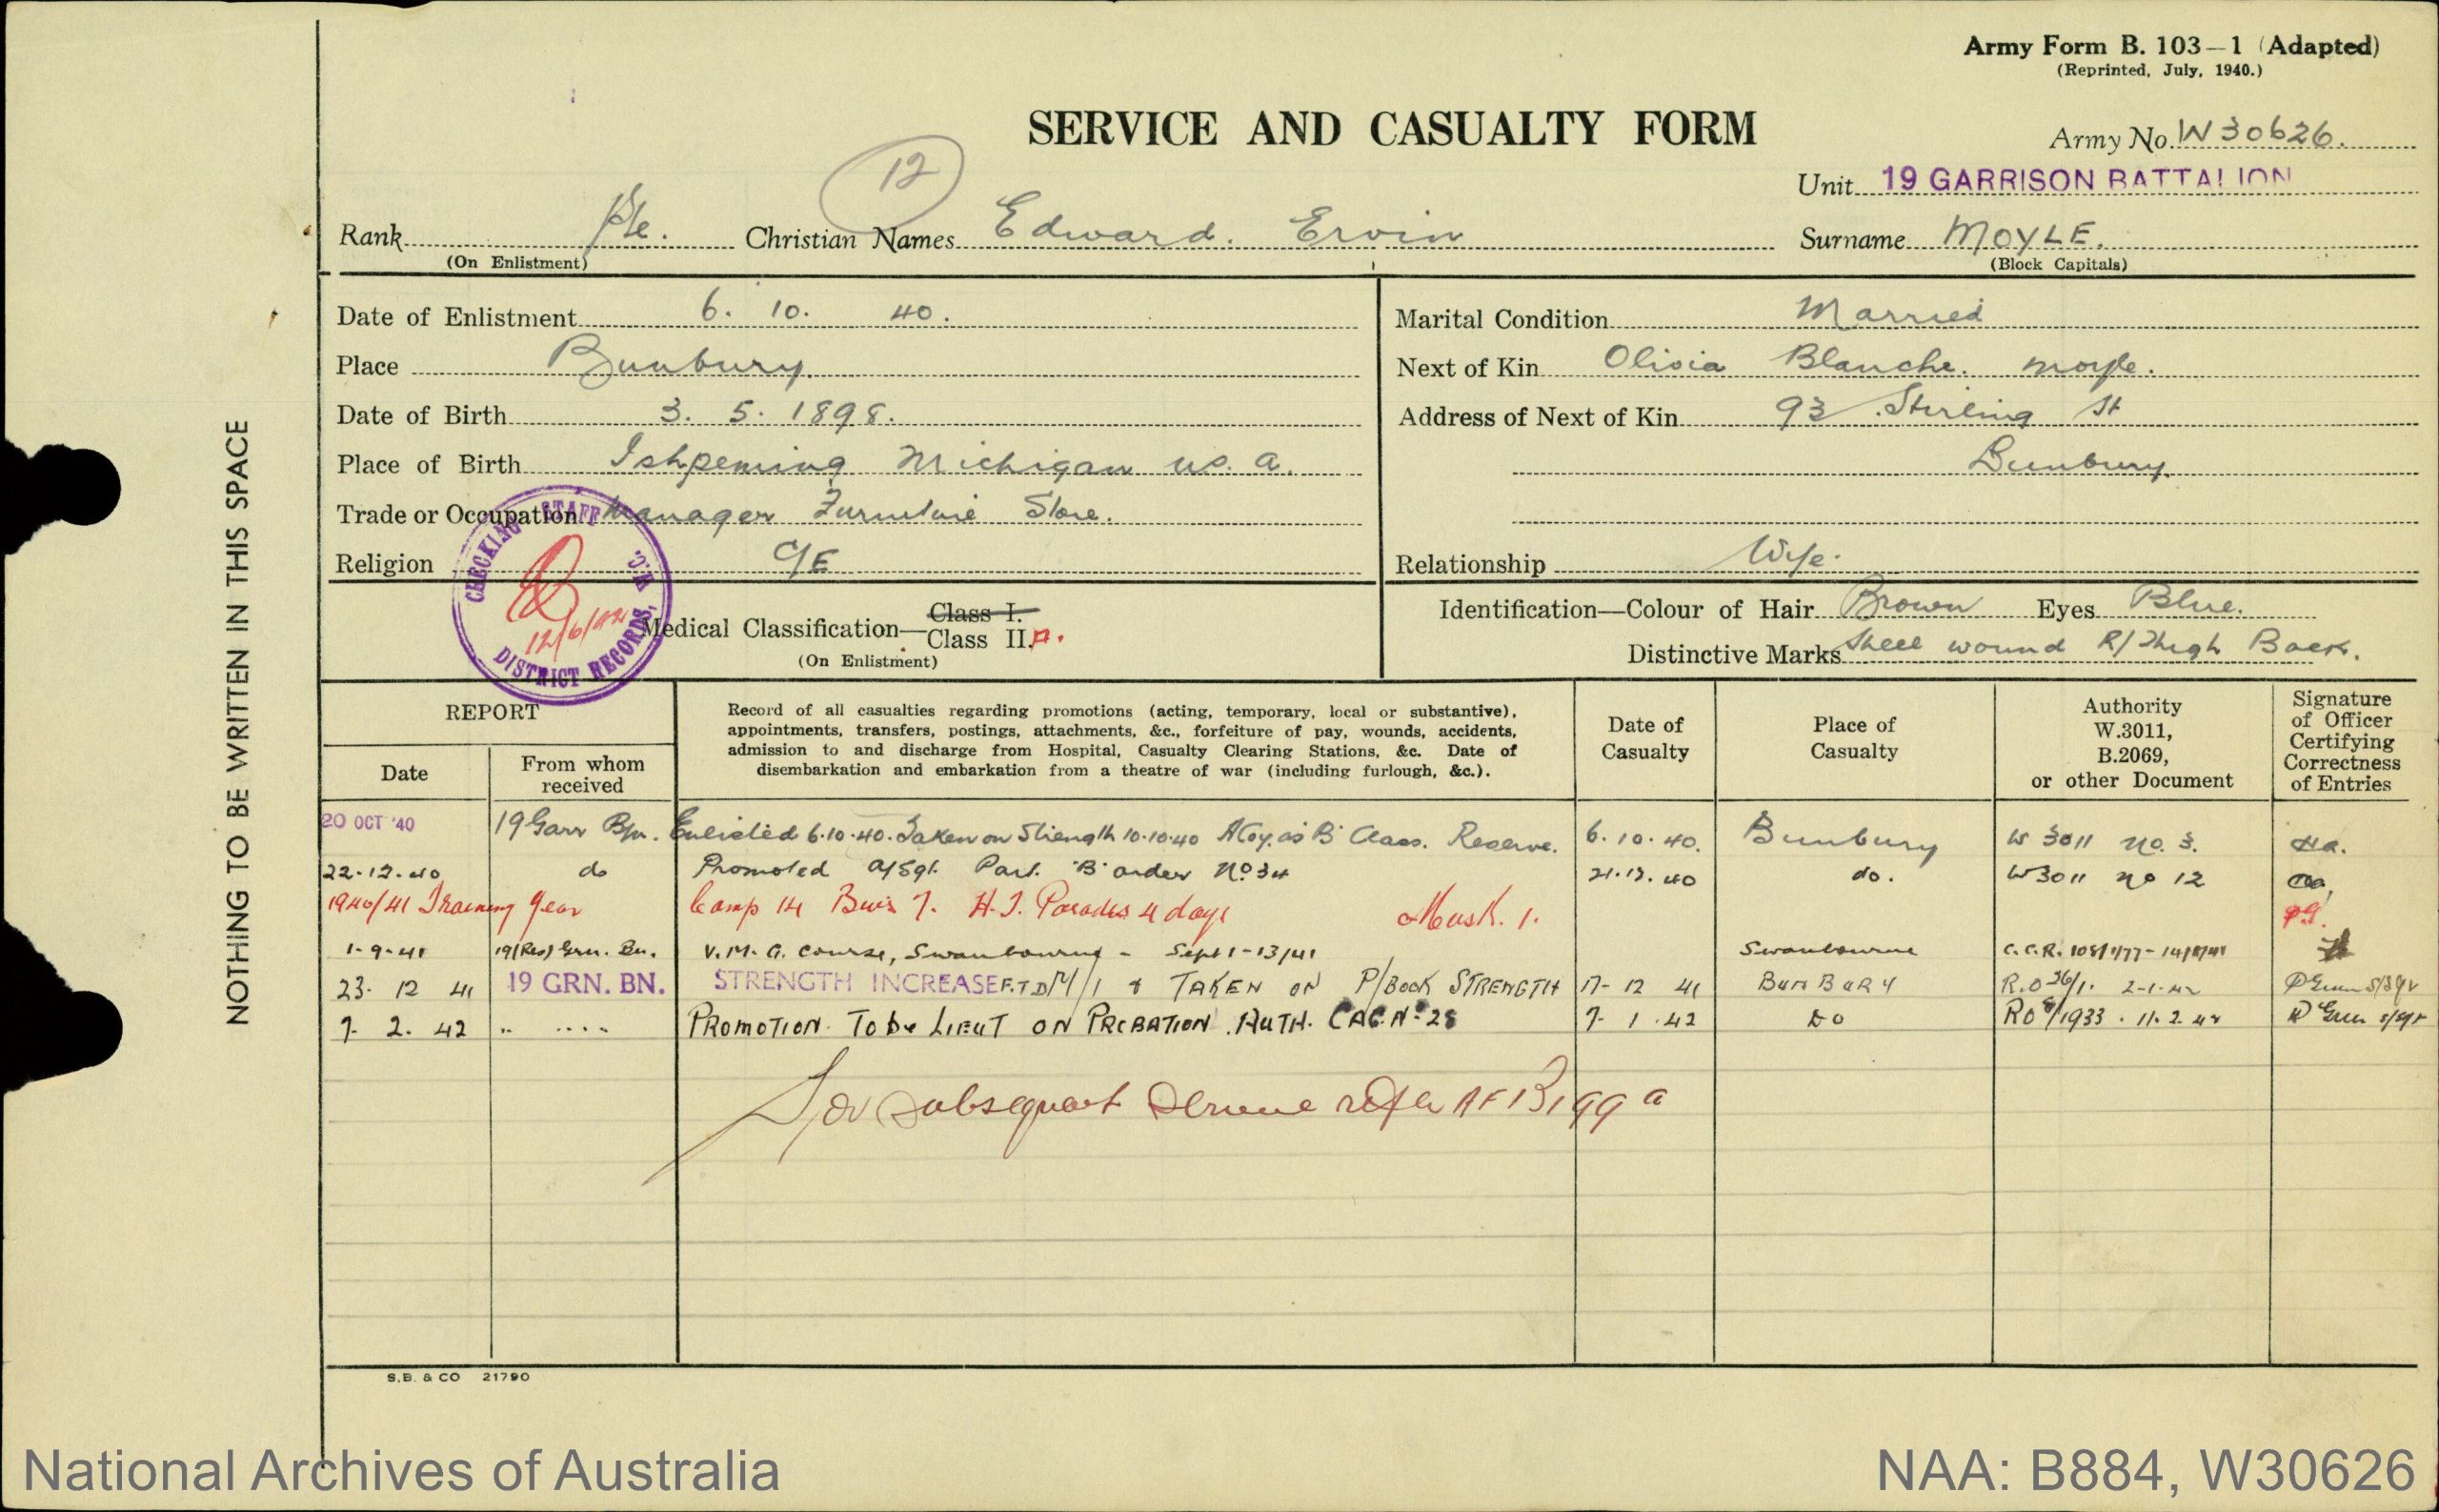 Army Form B. 103—1 (Adapted)
(Reprinted, July, 1940.)
SERVICE AND CASUALTY FORM
Army No. W30626.
12
Unit 19 GARRISON BATTALION
Rank Pte. Christian Names Edward. Ervin Surname MOYLE.
(On Enlistment) (Block Capitals)
Date of Enlistment 6. 10. 40.
Place Bunbury.
Date of Birth 3. 5. 1898.
Place of Birth Ishpeming Michigan U.S.A.
Trade or Occupation Manager Furniture Store.
Religion C/E
Marital Condition Married
Next of Kin Olivia Blanche. Moyle.
Address of Next of Kin 93 Stirling St
Bunbury.
Relationship Wife.
CHECKING STAFF
12/6/42
DISTRICT RECORDS,
Medical Classification—Class I.
Class II.
(On Enlistment)
Identification—Colour of Hair Brown Eyes Blue.
Distinctive Marks Shell wound R/Thigh Back.
REPORT
Date
From whom received
Record of all casualties regarding promotions (acting, temporary, local or substantive),
appointments, transfers, postings, attachments, &c., forfeiture of pay, wounds, accidents,
admission to and discharge from Hospital, Casualty Clearing Stations, &c. Date of
disembarkation and embarkation from a theatre of war (including furlough, &c.).
Date of Casualty
Place of Casualty
Authority W.3011, B.2069, or other Document
Signature of Officer Certifying Correctness of Entries
20 OCT '40 19 Garr Bn. Enlisted 6.10.40. Taken on Strength 10.10.40 A Coy. as 'B' Class. Reserve. 6.10.40. Bunbury W3011 No. 3.
22.12.40 do Promoted a/Sgt. Part 'B' order No 34 21.12.40 do. W3011 No 12
1940/41 Training Year Camp 14 Biv's 7. H.T. Parades 4 days Musk. 1.
1-9-41 19(Res) Grn. Bn. V.M.G. Course, Swanbourne - Sept 1-13/41 Swanbourne
23. 12 41 19 GRN. BN. STRENGTH INCREASE F.T.D. M/1 & TAKEN ON P/BOOK STRENGTH 17- 12 41 BUNBURY R.O 26/1. 2-1-42
7. 2. 42 " " PROMOTION. To be LIEUT ON PROBATION. AUTH. CAC. No 28 7- 1. 42 DO RO 8/1933. 11.2.42
For subsequent Service refer AF B199a
NOTHING TO BE WRITTEN IN THIS SPACE
S.B. & CO 21790
National Archives of Australia
NAA: B884, W30626